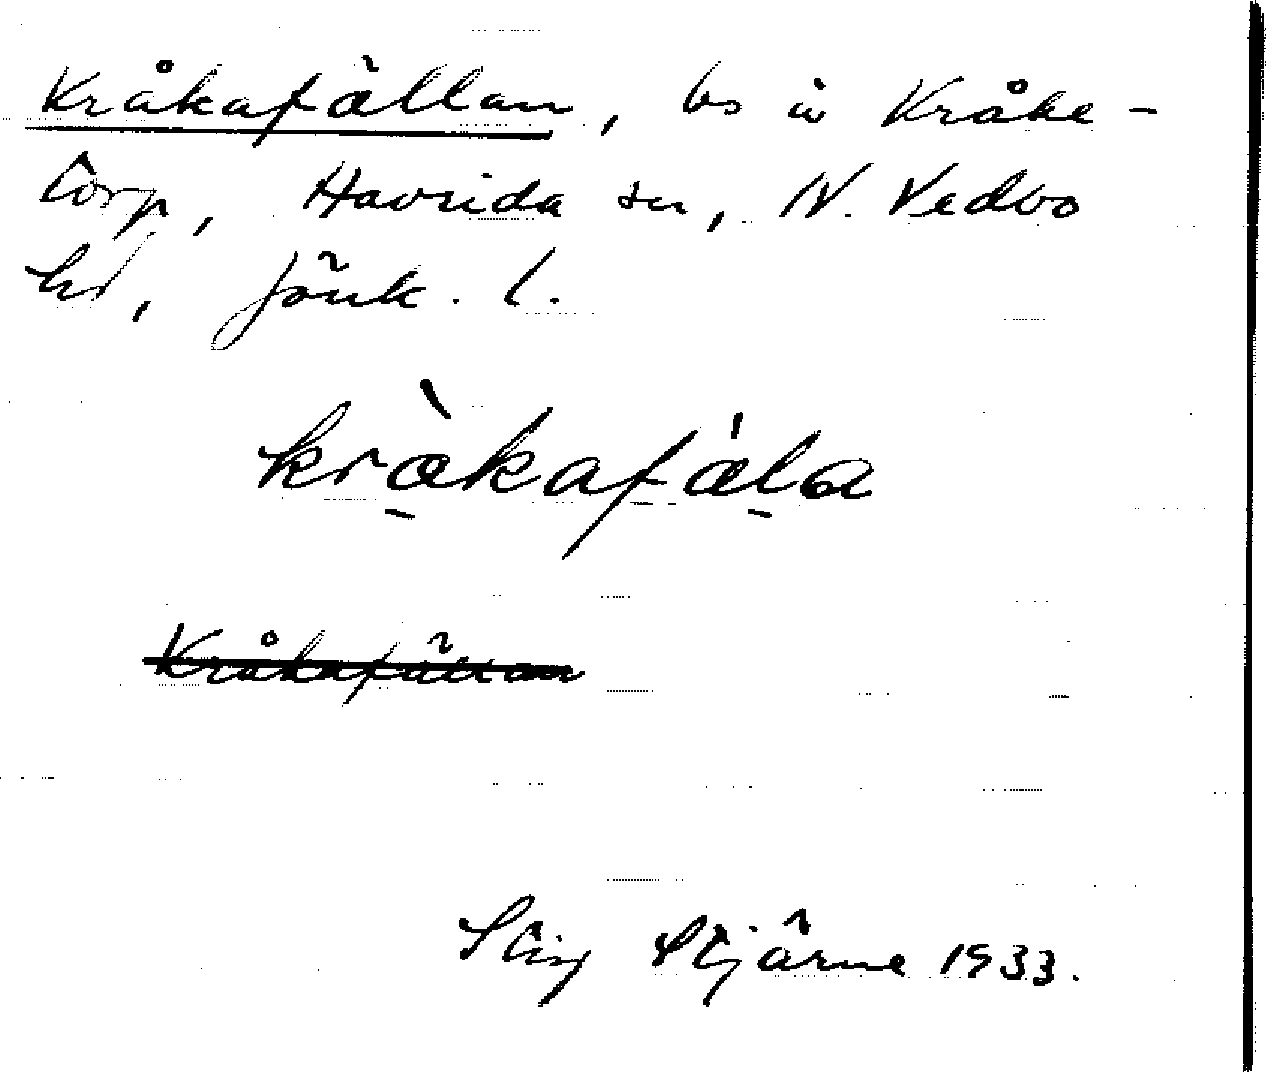 Kråkafällan, bs i Kråke-
torp, Haurida sn, N. Vedbo
hd, Jönk. l.
kràkafála
Kråkafällan
Stig Stjärne 1933.